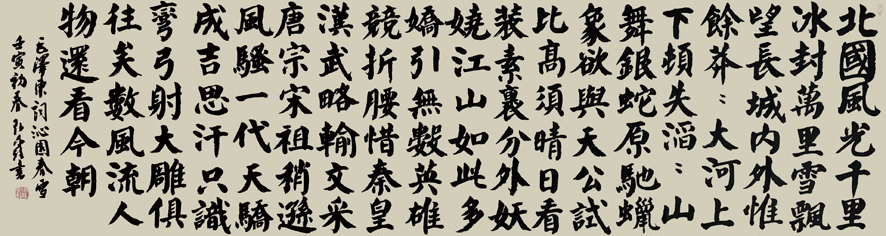 北國風光千里
冰封萬里雪飄
望長城内外惟
餘莽〻大河上
下頓失滔〻山
舞銀蛇原馳蠟
象欲與天公試
比高須晴日看
装素裹分外妖
嬈江山如此多
嬌引無數英雄
競折腰惜秦皇
漢武略輸文采
唐宗宋祖稍遜
風騷一代天驕
成吉思汗只識
彎弓射大雕俱
往矣數風流人
物還看今朝
毛澤東詞沁園春雪
壬寅初春書